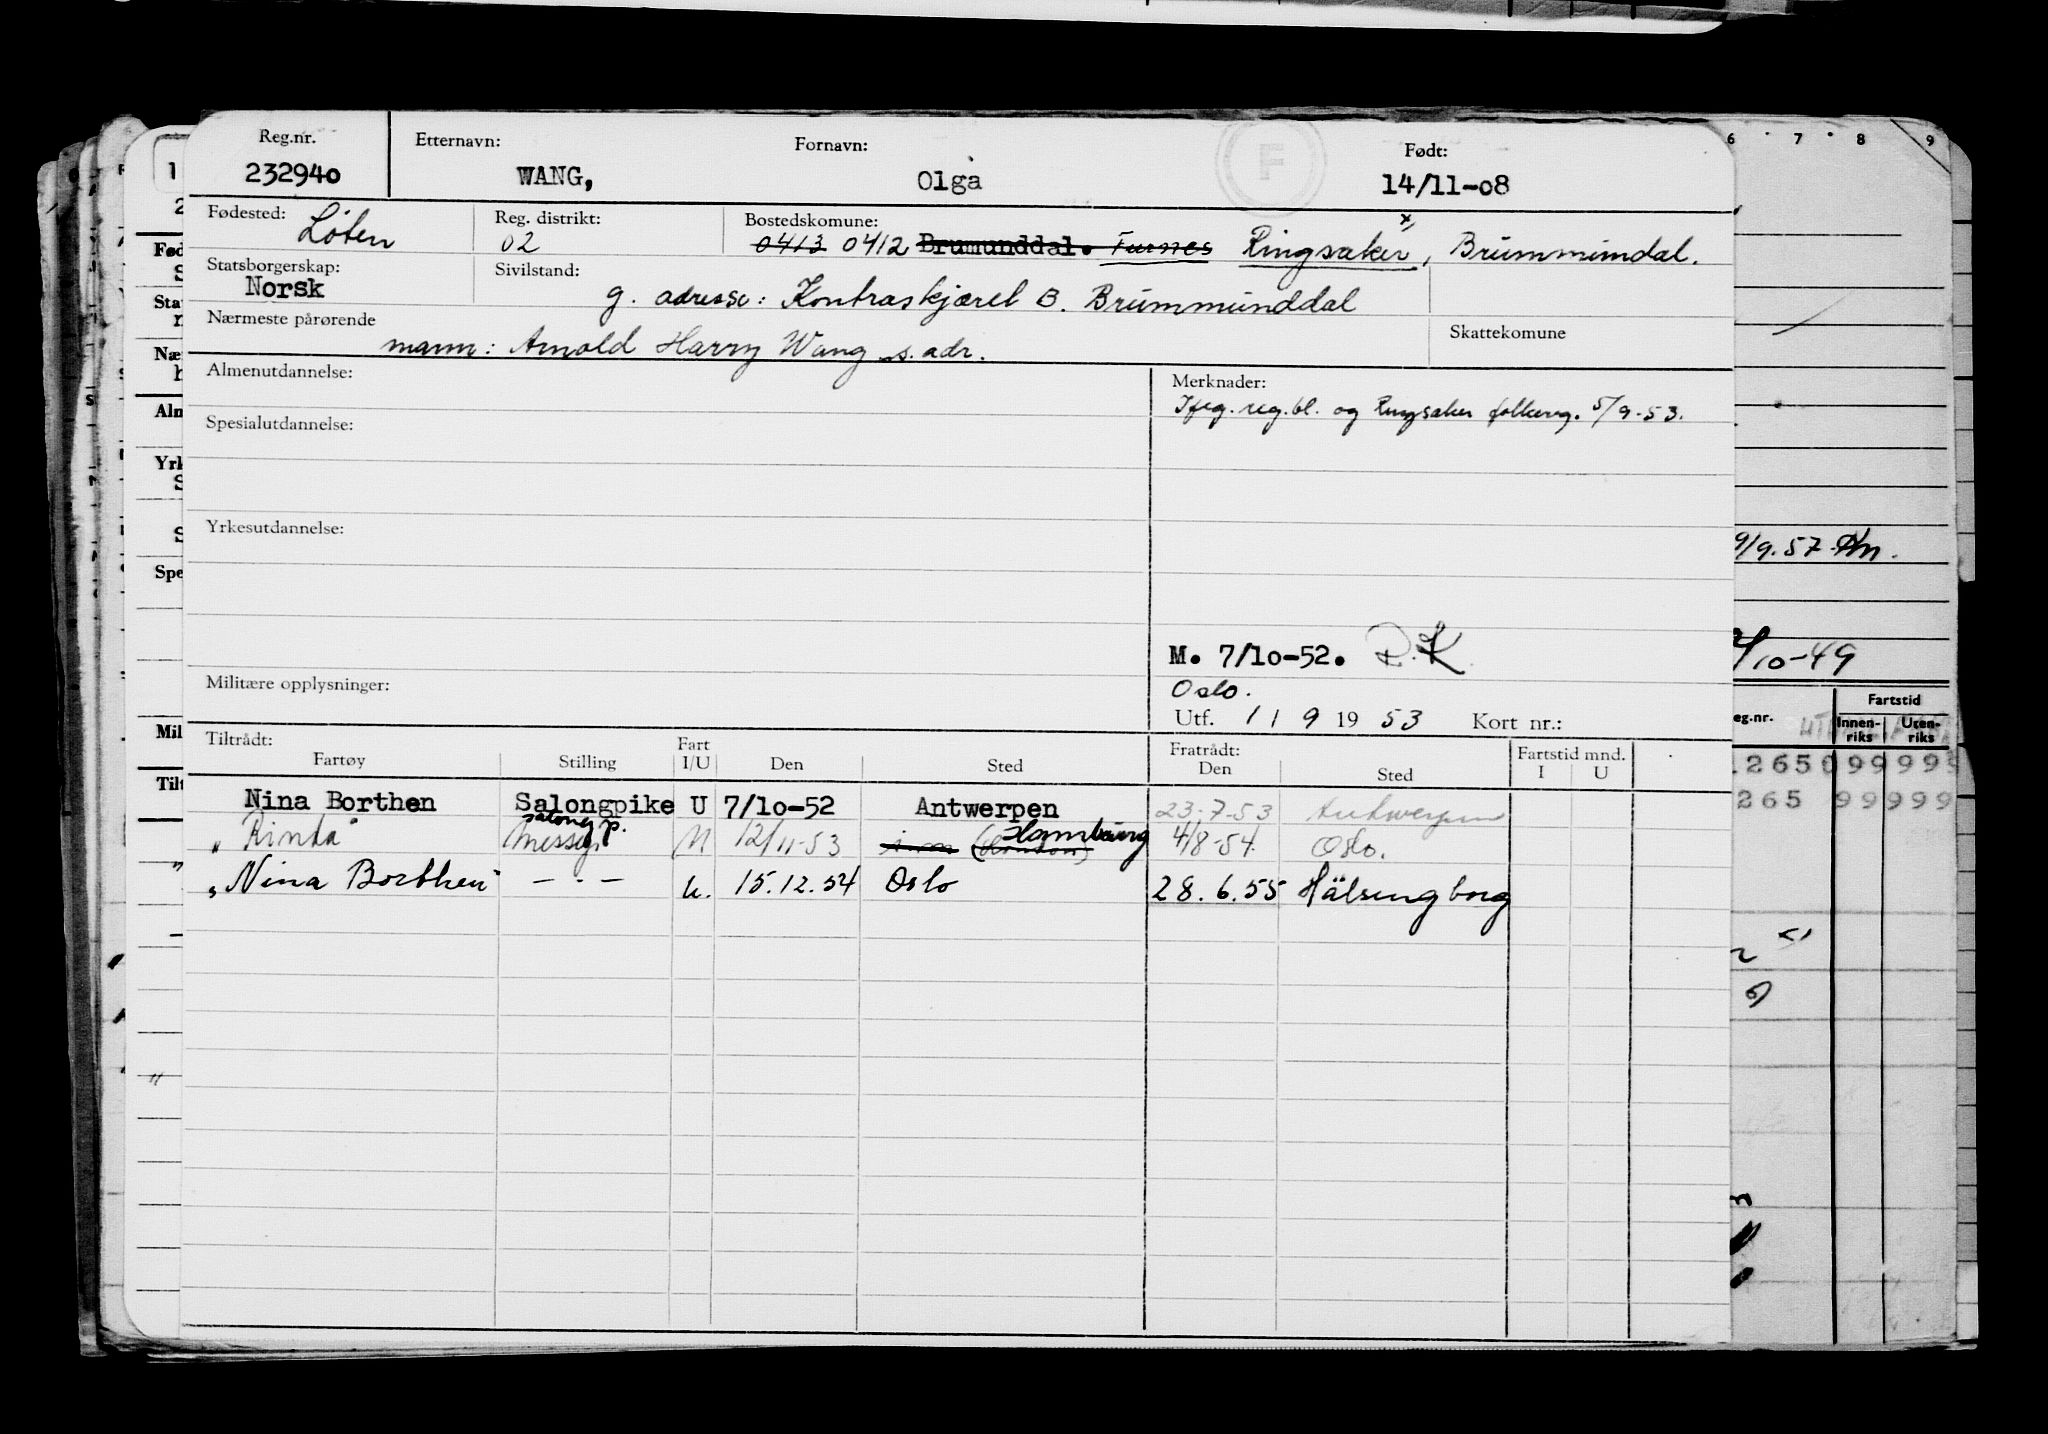 Reg.nr. Etternavn: Fornavn: Født:
232940 WANG, Olga F 14/11-08
Fødested: Løten Reg. distrikt: 02 Bostedskommune: 0413 0412 Brumunddal. Furnes Ringsaker x, Brummundal.
Statsborgerskap: Norsk Sivilstand: g. adresse: Kontraskjæret B. Brummunddal
Nærmeste pårørende Skattekomune
mann: Arnold Harry Wang s. adr.
Almenutdannelse: Merknader:
reg.bl. og Ringsaker 5/9-53.
Spesialutdannelse:
Yrkesutdannelse:
M. 7/10-52. R.K
Militære opplysninger: Oslo.
Utf. 1 / 9 19 53 Kort nr.:
Tiltrådt: Fratrådt:
Fartøy Stilling Fart I/U Den Sted Den Sted Fartstid mnd. I U
Nina Borthen Salongpike U 7/10-52 Antwerpen 23.7-53 Antwerpen
"Rinda" salong p. U 12/11-53 Hamburg 4/8-54 Oslo.
"Nina Borthen" — · — u. 15.12.54 Oslo 28.6.55 Hälsingborg
6 7 8 9
9/9.57
/10-49
eg.nr. Fartstid
Innen-riks Uten-riks
265 99 999
265 99 999
1
2
Fød
S
Sta
Næ
Aln
Yrk
S
Spe
Mil
Tilt